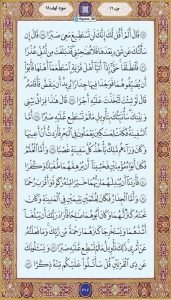 جزء ١٦
سورة کهف ١٨
۞ قَالَ أَلَمْ أَقُل لَّكَ إِنَّكَ لَن تَسْتَطِيعَ مَعِيَ صَبْرًا ٧٥ قَالَ إِن
سَأَلْتُكَ عَن شَيْءٍ بَعْدَهَا فَلَا تُصَاحِبْنِي قَدْ بَلَغْتَ مِن لَّدُنِّي عُذْرًا
٧٦ فَانطَلَقَا حَتَّىٰ إِذَا أَتَيَا أَهْلَ قَرْيَةٍ اسْتَطْعَمَا أَهْلَهَا فَأَبَوْا
أَن يُضَيِّفُوهُمَا فَوَجَدَا فِيهَا جِدَارًا يُرِيدُ أَن يَنقَضَّ فَأَقَامَهُ
قَالَ لَوْ شِئْتَ لَتَّخَذْتَ عَلَيْهِ أَجْرًا ٧٧ قَالَ هَٰذَا فِرَاقُ بَيْنِي
وَبَيْنِكَ سَأُنَبِّئُكَ بِتَأْوِيلِ مَا لَمْ تَسْتَطِع عَّلَيْهِ صَبْرًا ٧٨ أَمَّا
السَّفِينَةُ فَكَانَتْ لِمَسَاكِينَ يَعْمَلُونَ فِي الْبَحْرِ فَأَرَدتُّ أَنْ أَعِيبَهَا
وَكَانَ وَرَاءَهُم مَّلِكٌ يَأْخُذُ كُلَّ سَفِينَةٍ غَصْبًا ٧٩ وَأَمَّا الْغُلَامُ
فَكَانَ أَبَوَاهُ مُؤْمِنَيْنِ فَخَشِينَا أَن يُرْهِقَهُمَا طُغْيَانًا وَكُفْرًا
٨٠ فَأَرَدْنَا أَن يُبْدِلَهُمَا رَبُّهُمَا خَيْرًا مِّنْهُ زَكَاةً وَأَقْرَبَ رُحْمًا
٨١ وَأَمَّا الْجِدَارُ فَكَانَ لِغُلَامَيْنِ يَتِيمَيْنِ فِي الْمَدِينَةِ وَكَانَ
تَحْتَهُ كَنزٌ لَّهُمَا وَكَانَ أَبُوهُمَا صَالِحًا فَأَرَادَ رَبُّكَ أَن يَبْلُغَا
أَشُدَّهُمَا وَيَسْتَخْرِجَا كَنزَهُمَا رَحْمَةً مِّن رَّبِّكَ وَمَا فَعَلْتُهُ
عَنْ أَمْرِي ذَٰلِكَ تَأْوِيلُ مَا لَمْ تَسْطِع عَّلَيْهِ صَبْرًا ٨٢ وَيَسْأَلُونَكَ
عَن ذِي الْقَرْنَيْنِ قُلْ سَأَتْلُو عَلَيْكُم مِّنْهُ ذِكْرًا ٨٣
٣٠٢